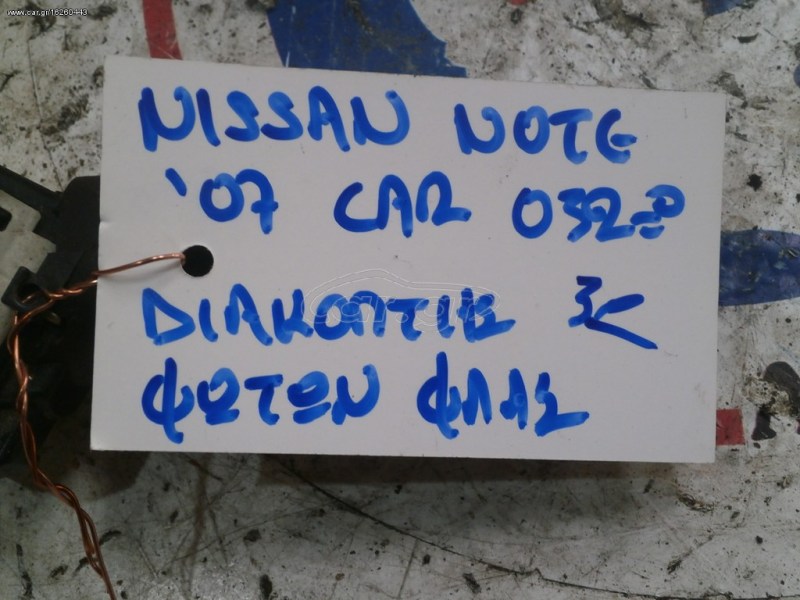 www.car.gr/16260443
NISSAN NOTE
'07 CAR
ΔΙΑΚΟΠΤΗΣ
ΦΩΤΩΝ ΦΛΑΣ